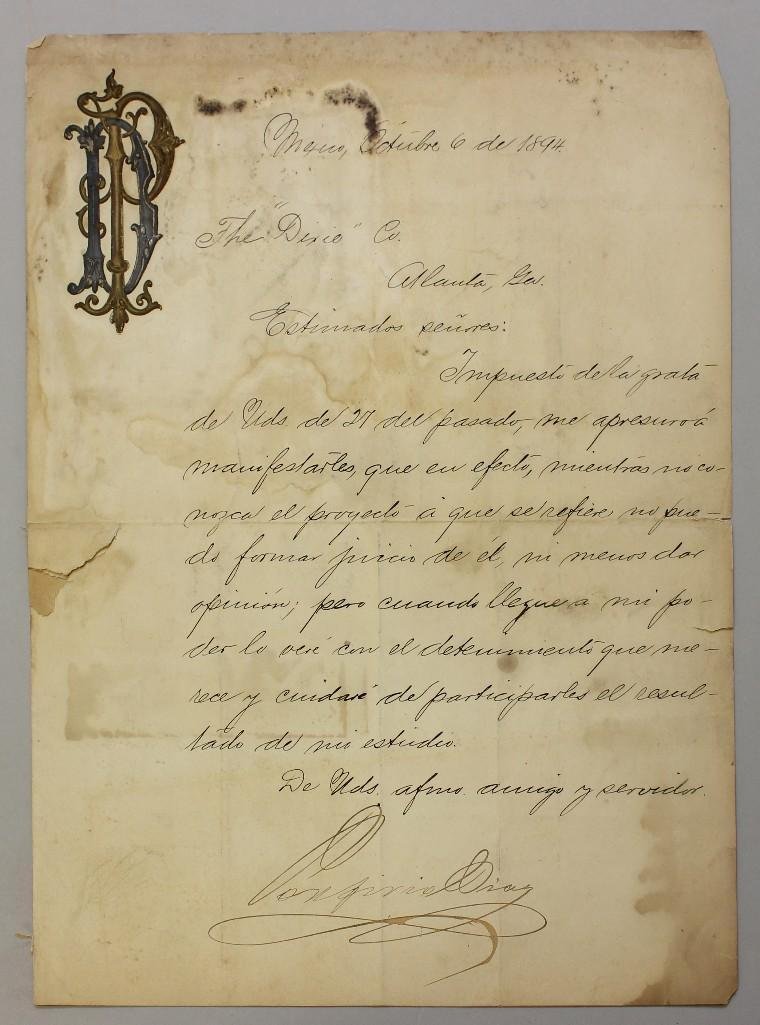 PD
Mexico, Octubre 6 de 1894.
The "Dixie" Co.
Atlanta, Ga.
Estimados señores:
Impuesto de la grata
de Uds. de 27 del pasado, me apresuro á
manifestarles, que en efecto, mientras no co-
nozca el proyecto á que se refiere, no pue-
do formar juicio de él, ni menos dar
opinión; pero cuando llegue a mi po-
der lo veré con el detenimiento que me-
rece y cuidaré de participarles el resul-
tado de mi estudio.
De Uds. afmo. amigo y servidor.
Porfirio Diaz